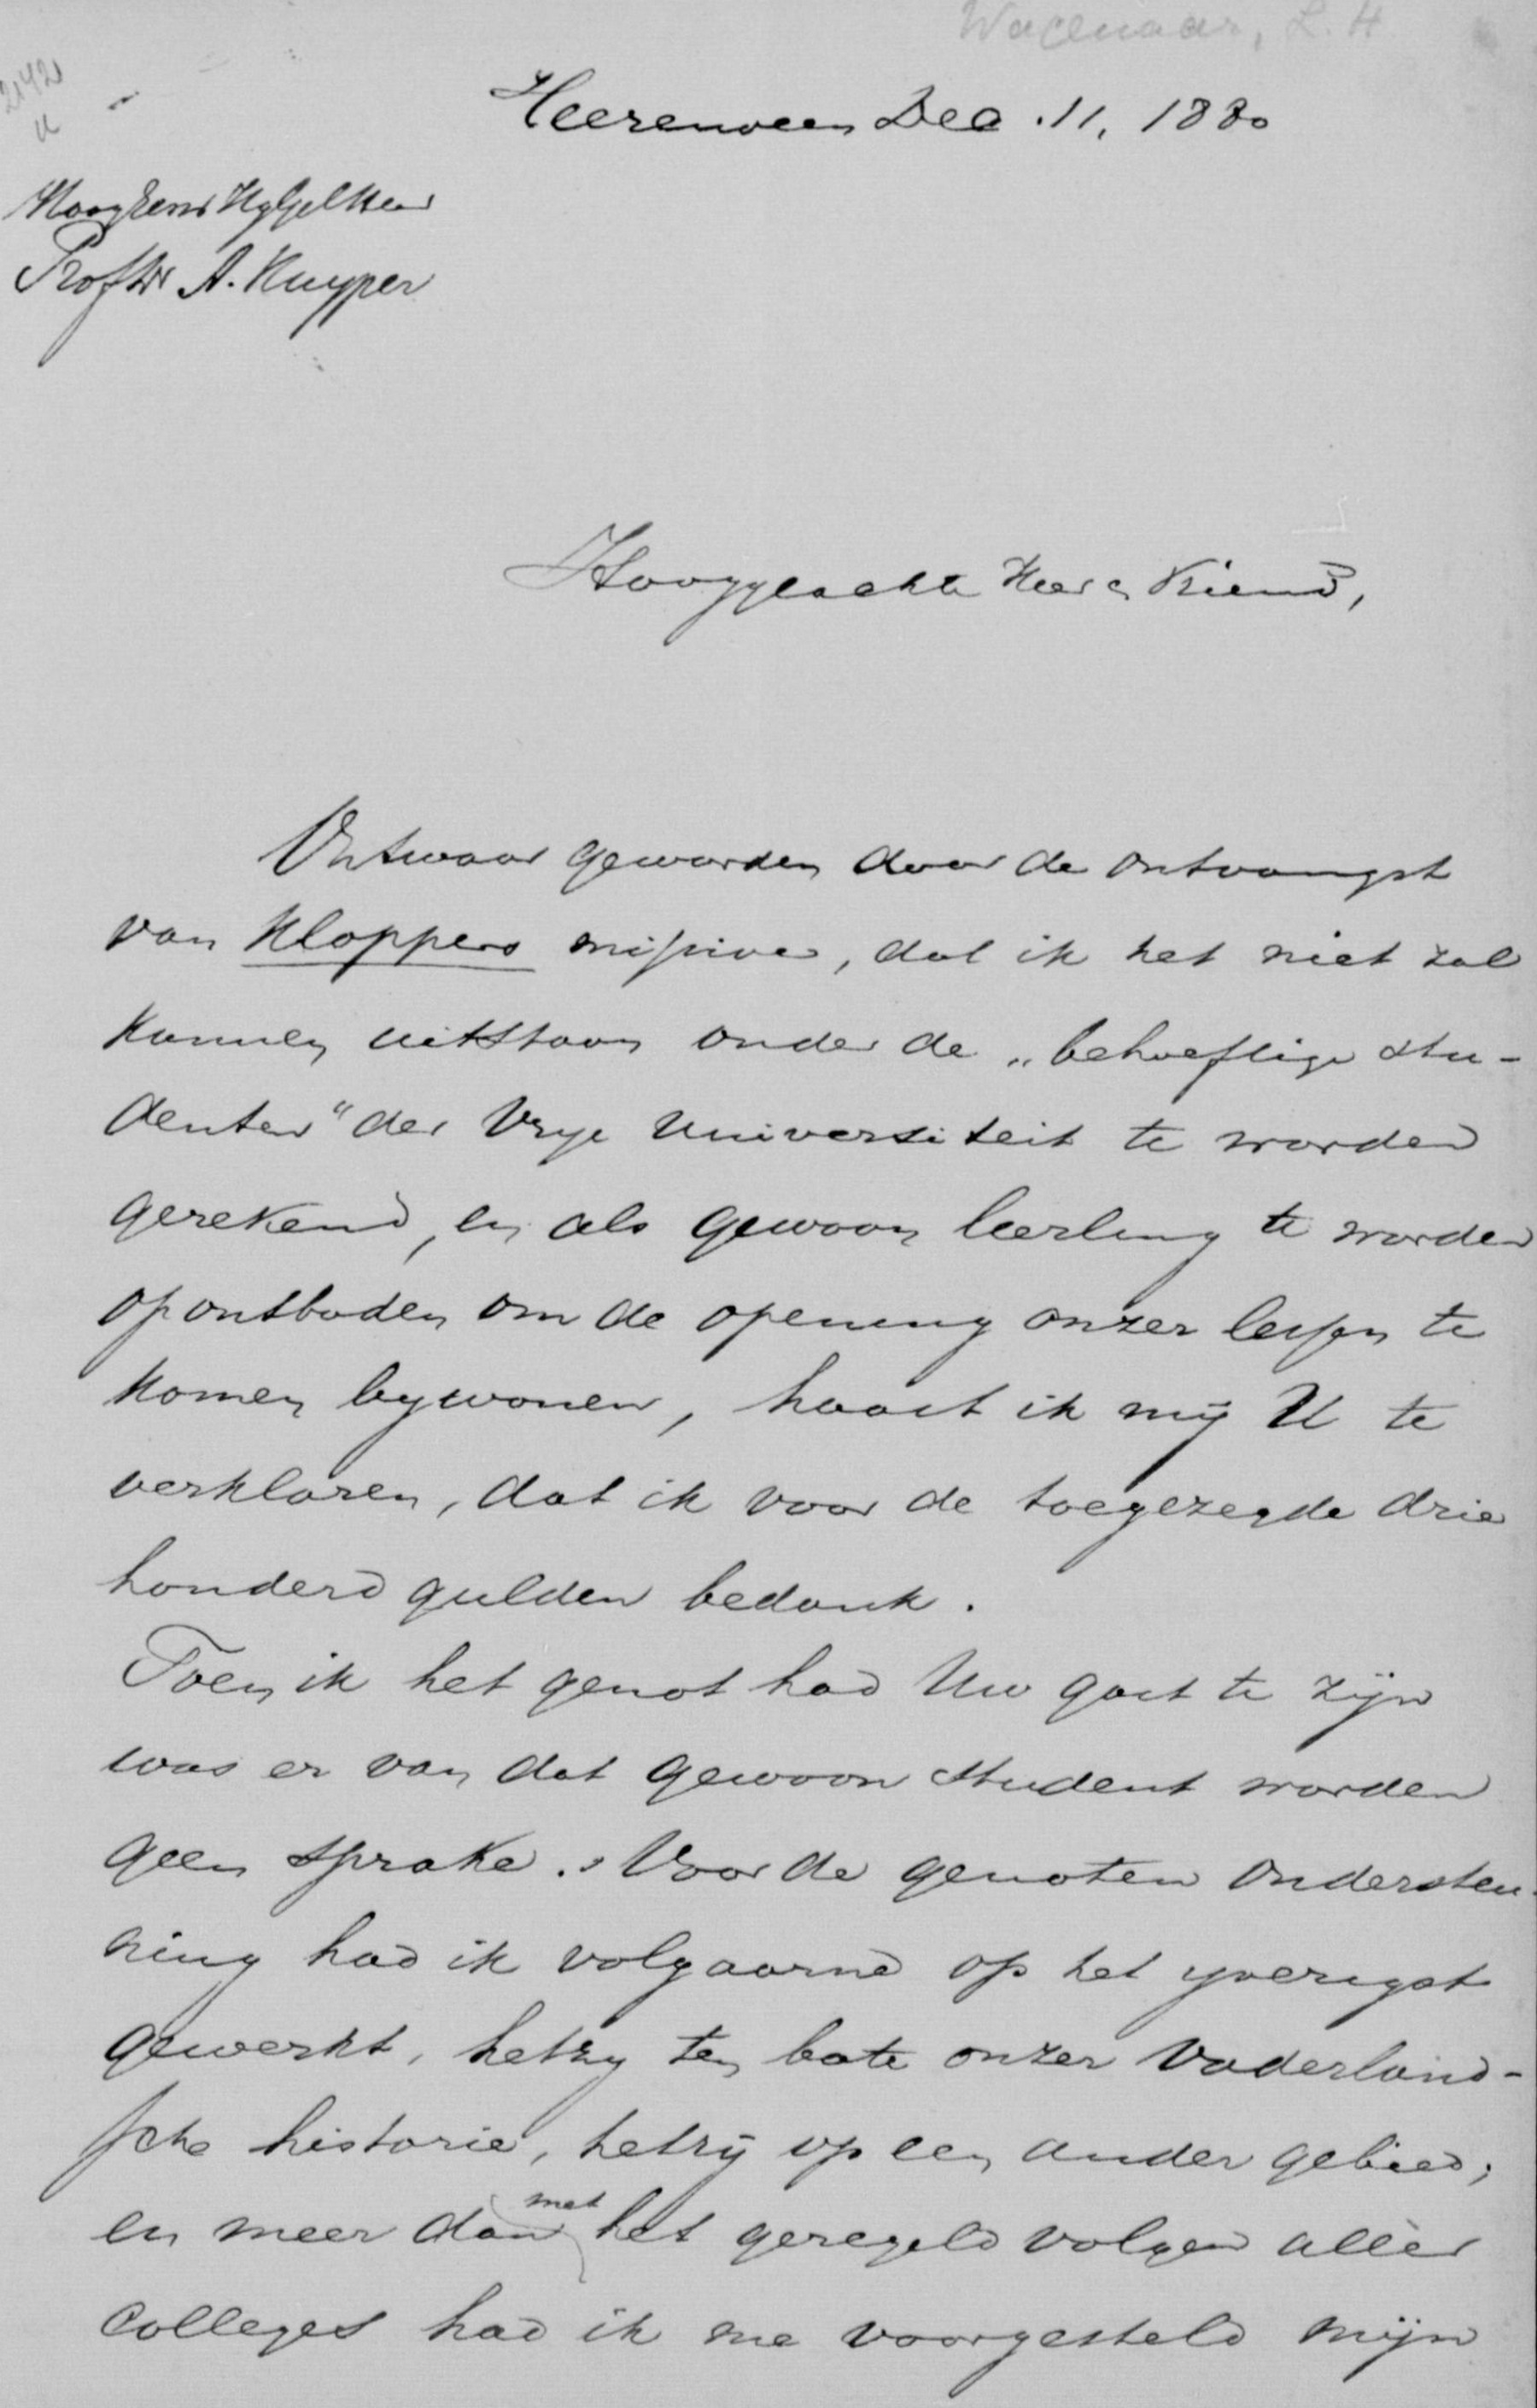 Wagenaar, L. H
2142
Heerenveen Dec. 11, 1880
HoogEerw HgGel Heer
Prof Dr A. Kuyper
Hooggeachte Heer en Vriend,
Ontwaar geworden door de ontvangst
van Kloppers missive, dat ik het niet zal
kunnen uitstaan onder de „behoeftige stu-
denten" der Vrye Universiteit te worden
gerekend, en als gewoon leerling te worden
opontboden om de opening onzer lessen te
komen bywonen, haast ik mij U te
verklaren, dat ik voor de toegezegde drie
honderd gulden bedank.
Toen ik het genot had Uw gast te zijn
was er van dat gewoon student worden
geen sprake. Voor de genoten ondersteu-
ning had ik volgaarne op het yverigst
gewerkt, hetzy ten bate onzer Vaderland-
sche historie, hetzij op een ander gebied;
en meer dan met het geregeld volgen aller
Colleges had ik me voorgesteld mijn